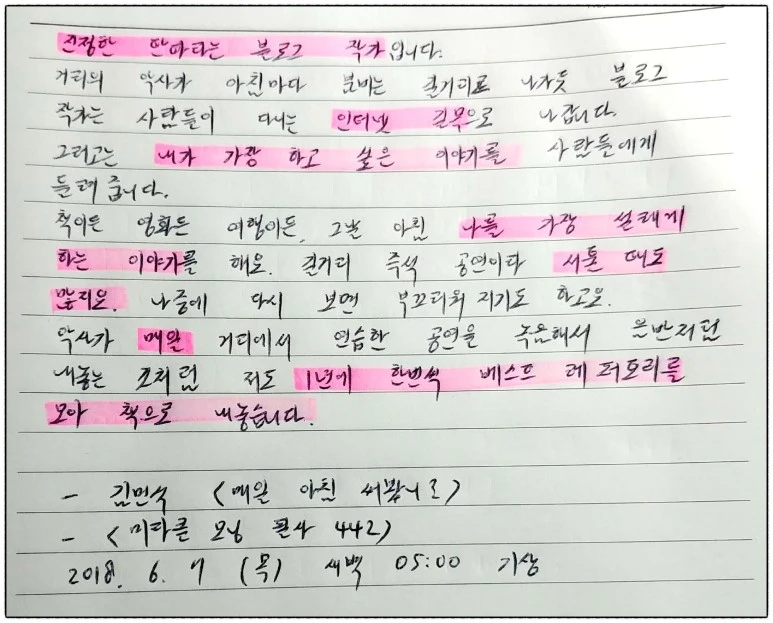 진정한 딴따라는 블로그 작가입니다.
거리의 악사가 아침마다 붐비는 길거리로 나가듯 블로그
작가는 사람들이 다니는 인터넷 길목으로 나갑니다.
그러고는 내가 가장 하고 싶은 이야기를 사람들에게
들려 줍니다.
책이든 영화든 여행이든, 그날 아침 나를 가장 설레게
하는 이야기를 해요. 길거리 즉석 공연이라 서툰 때도
많지요. 나중에 다시 보면 부끄러워 지기도 하고요.
악사가 매일 거리에서 연습한 공연을 녹음해서 음반처럼
내놓는 것처럼 저도 1년에 한번씩 베스트 레퍼토리를
모아 책으로 내놓습니다.
- 김민식 <매일 아침 써봤니?>
- <미라클 모닝 필사 442>
2018. 6. 7 (목) 새벽 05:00 기상